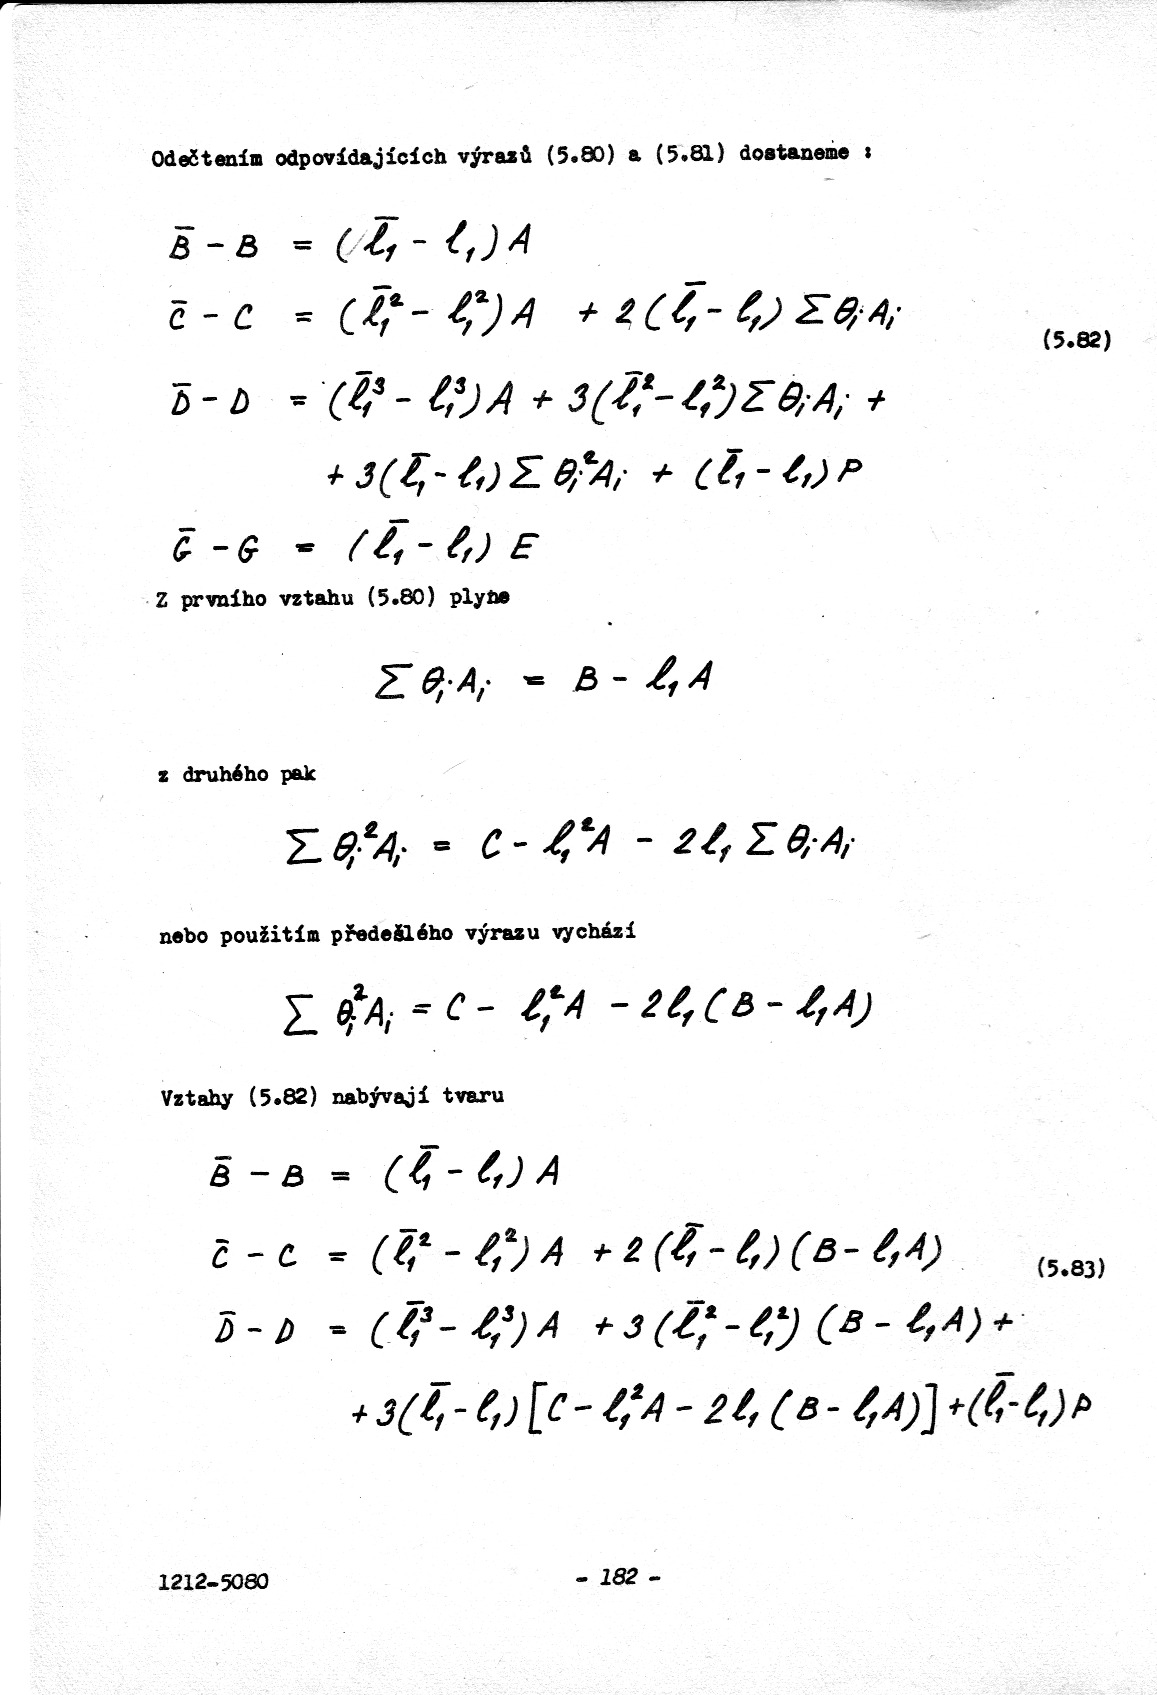 Odečtením odpovídajících výrazů (5.80) a (5.81) dostaneme :
B̄ - B = (ℓ̄₁ - ℓ₁) A
C̄ - C = (ℓ̄₁² - ℓ₁²) A + 2 (ℓ̄₁ - ℓ₁) Σ θᵢ Aᵢ
(5.82)
D̄ - D = (ℓ̄₁³ - ℓ₁³) A + 3 (ℓ̄₁² - ℓ₁²) Σ θᵢ Aᵢ +
+ 3 (ℓ̄₁ - ℓ₁) Σ θᵢ² Aᵢ + (ℓ̄₁ - ℓ₁) P
Ḡ - G = (ℓ̄₁ - ℓ₁) E
Z prvního vztahu (5.80) plyne
Σ θᵢ Aᵢ = B - ℓ₁ A
z druhého pak
Σ θᵢ² Aᵢ = C - ℓ₁² A - 2 ℓ₁ Σ θᵢ Aᵢ
nebo použitím předešlého výrazu vychází
Σ θᵢ² Aᵢ = C - ℓ₁² A - 2 ℓ₁ (B - ℓ₁ A)
Vztahy (5.82) nabývají tvaru
B̄ - B = (ℓ̄₁ - ℓ₁) A
C̄ - C = (ℓ̄₁² - ℓ₁²) A + 2 (ℓ̄₁ - ℓ₁) (B - ℓ₁ A)
(5.83)
D̄ - D = (ℓ̄₁³ - ℓ₁³) A + 3 (ℓ̄₁² - ℓ₁²) (B - ℓ₁ A) +
+ 3 (ℓ̄₁ - ℓ₁) [C - ℓ₁² A - 2 ℓ₁ (B - ℓ₁ A)] + (ℓ̄₁ - ℓ₁) P
1212-5080 - 182 -